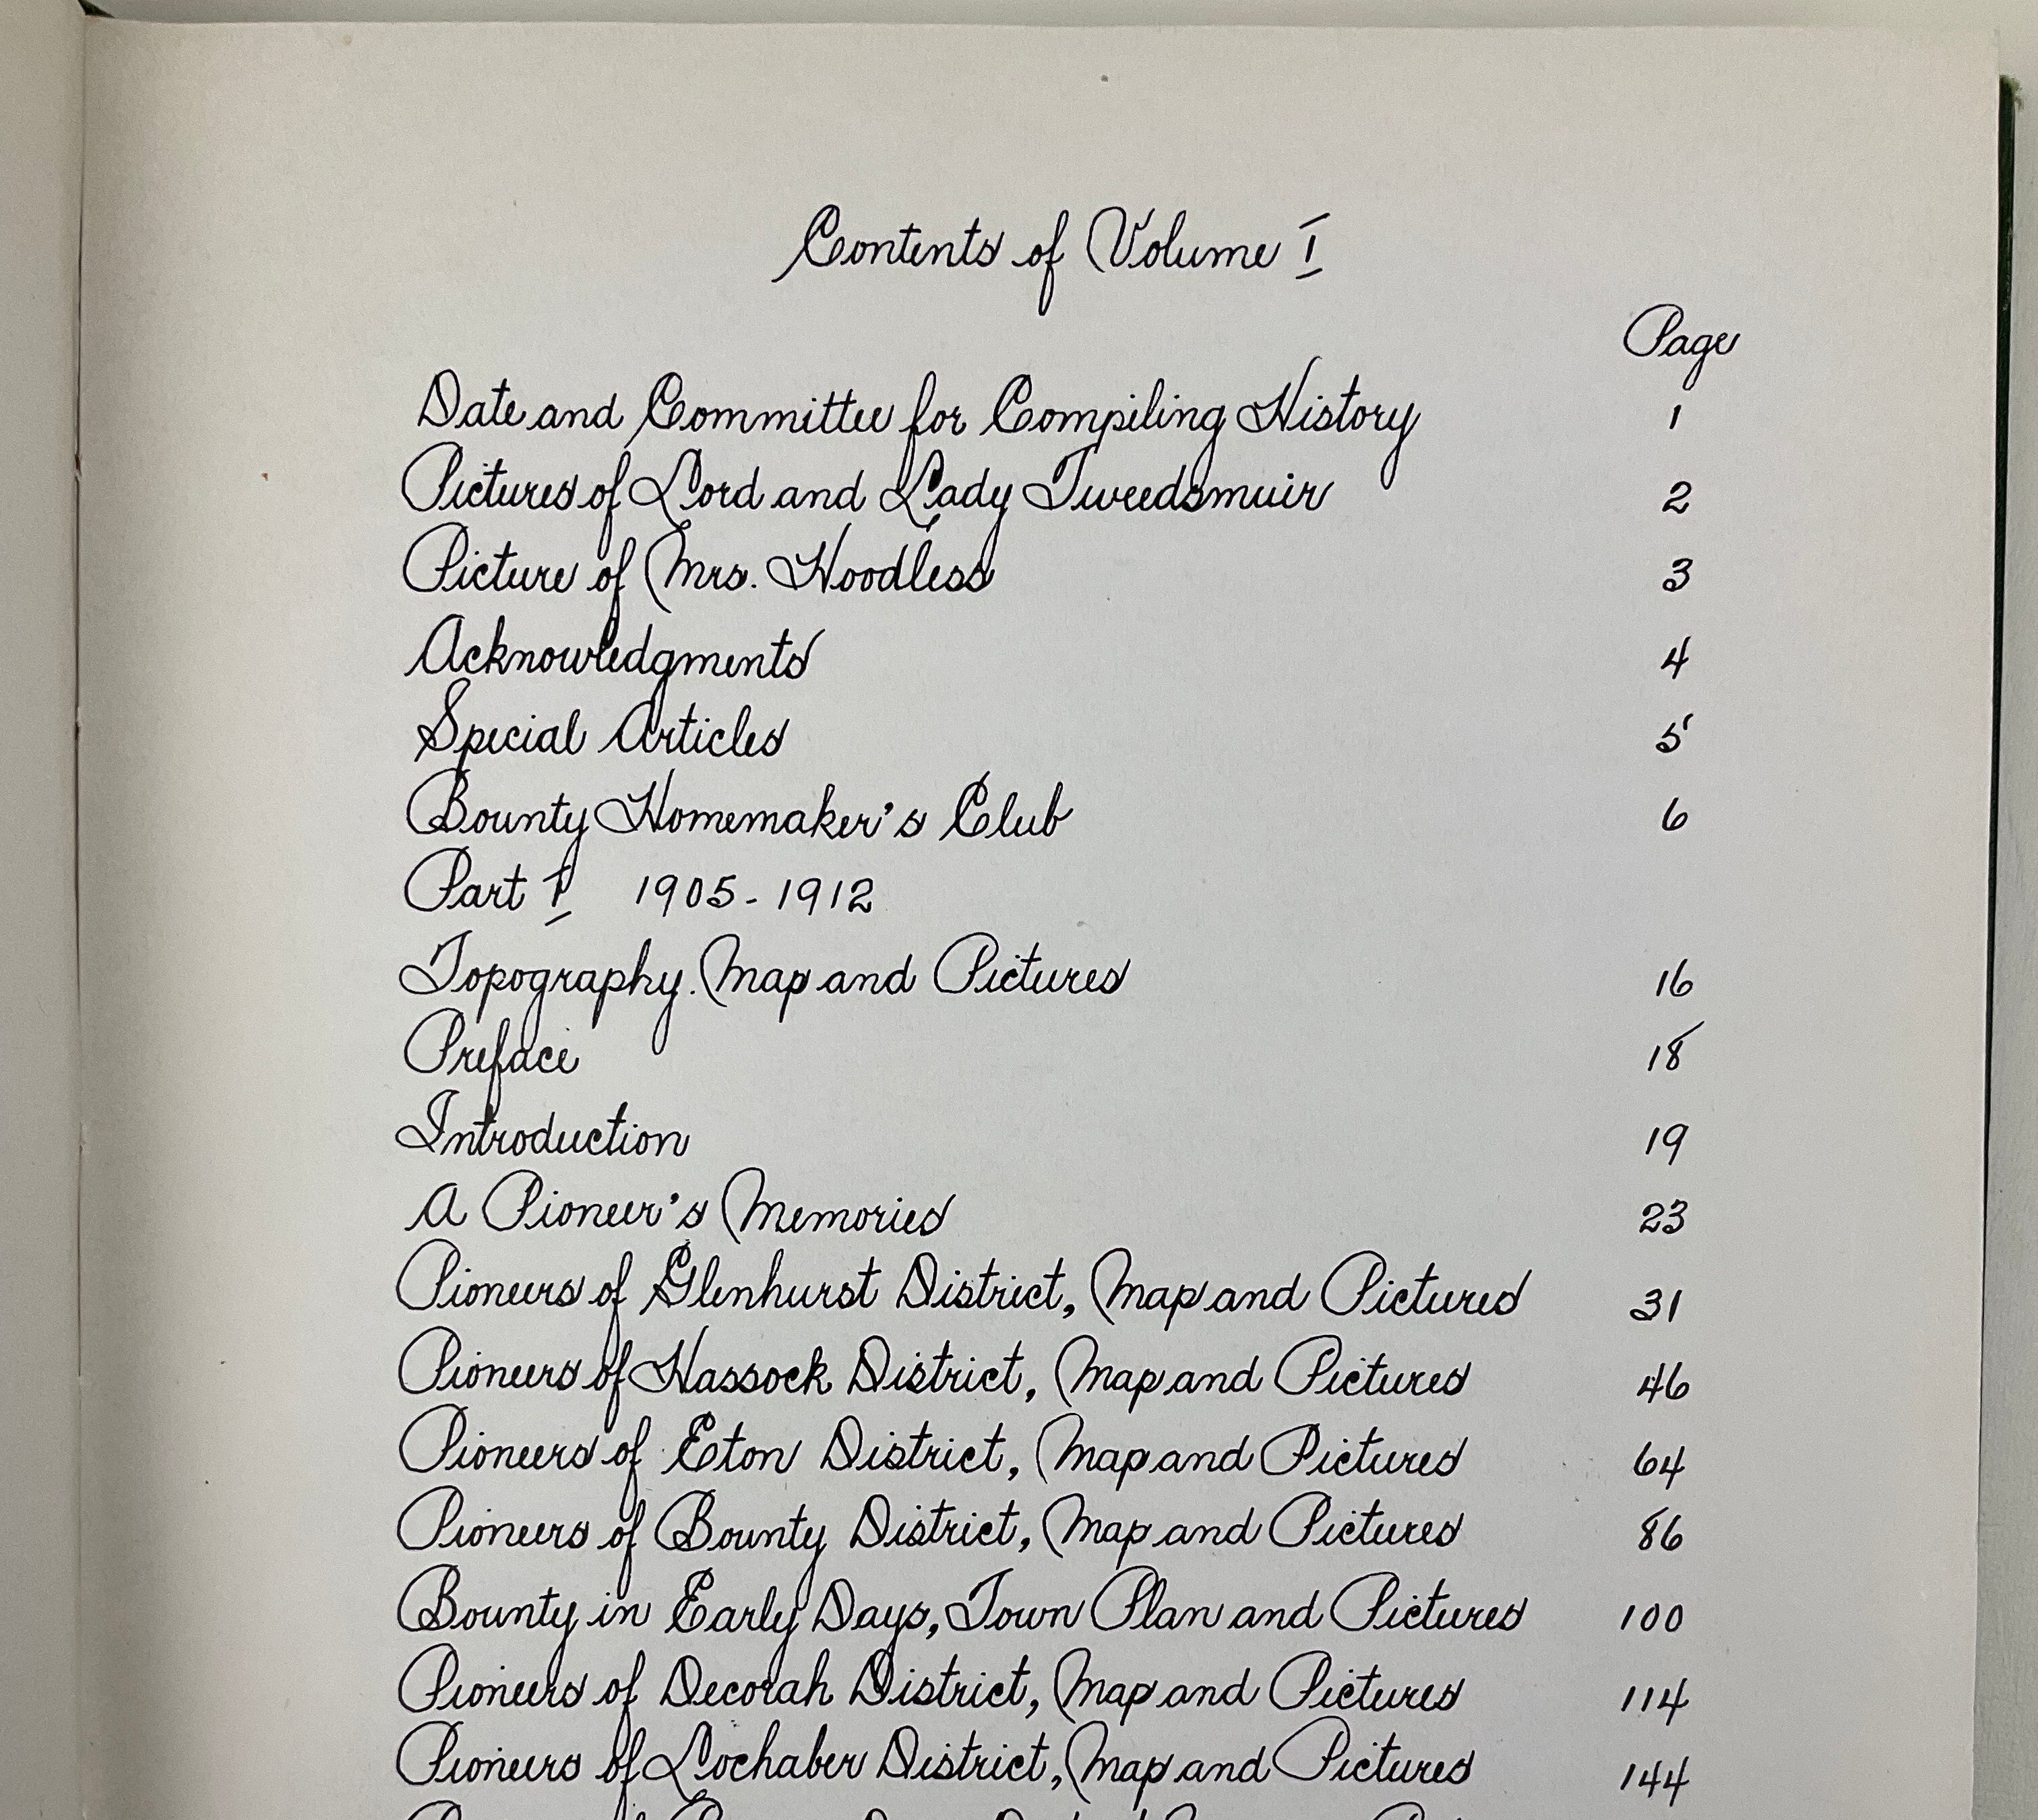 Contents of Volume I
Page
Date and Committee for Compiling History 1
Pictures of Lord and Lady Tweedsmuir 2
Picture of Mrs. Hoodless 3
Acknowledgments 4
Special Articles 5
Bounty Homemaker's Club 6
Part I 1905-1912
Topography. Map and Pictures 16
Preface 18
Introduction 19
A Pioneer's Memories 23
Pioneers of Glenhurst District, Map and Pictures 31
Pioneers of Hassock District, Map and Pictures 46
Pioneers of Eton District, Map and Pictures 64
Pioneers of Bounty District, Map and Pictures 86
Bounty in Early Days, Town Plan and Pictures 100
Pioneers of Decorah District, Map and Pictures 114
Pioneers of Lochaber District, Map and Pictures 144